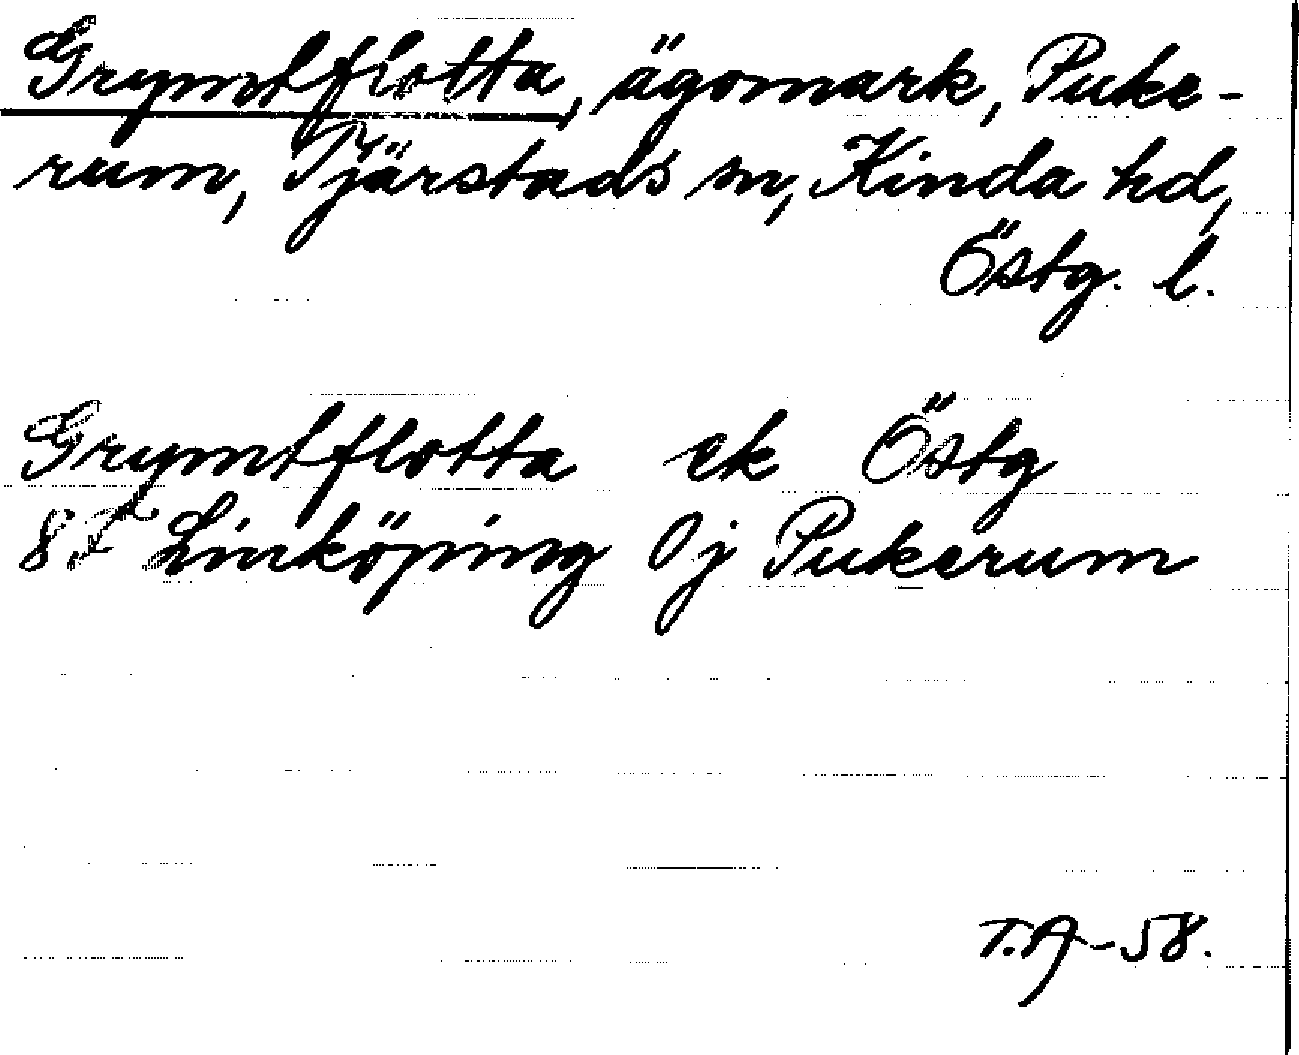 Grymtflotta, ägomark, Puke-
rum, Tjärstads sn, Kinda hd,
Östg. l.
Grymtflotta ek Östg
87 Linköping 0j Pukerum
T.A-58.